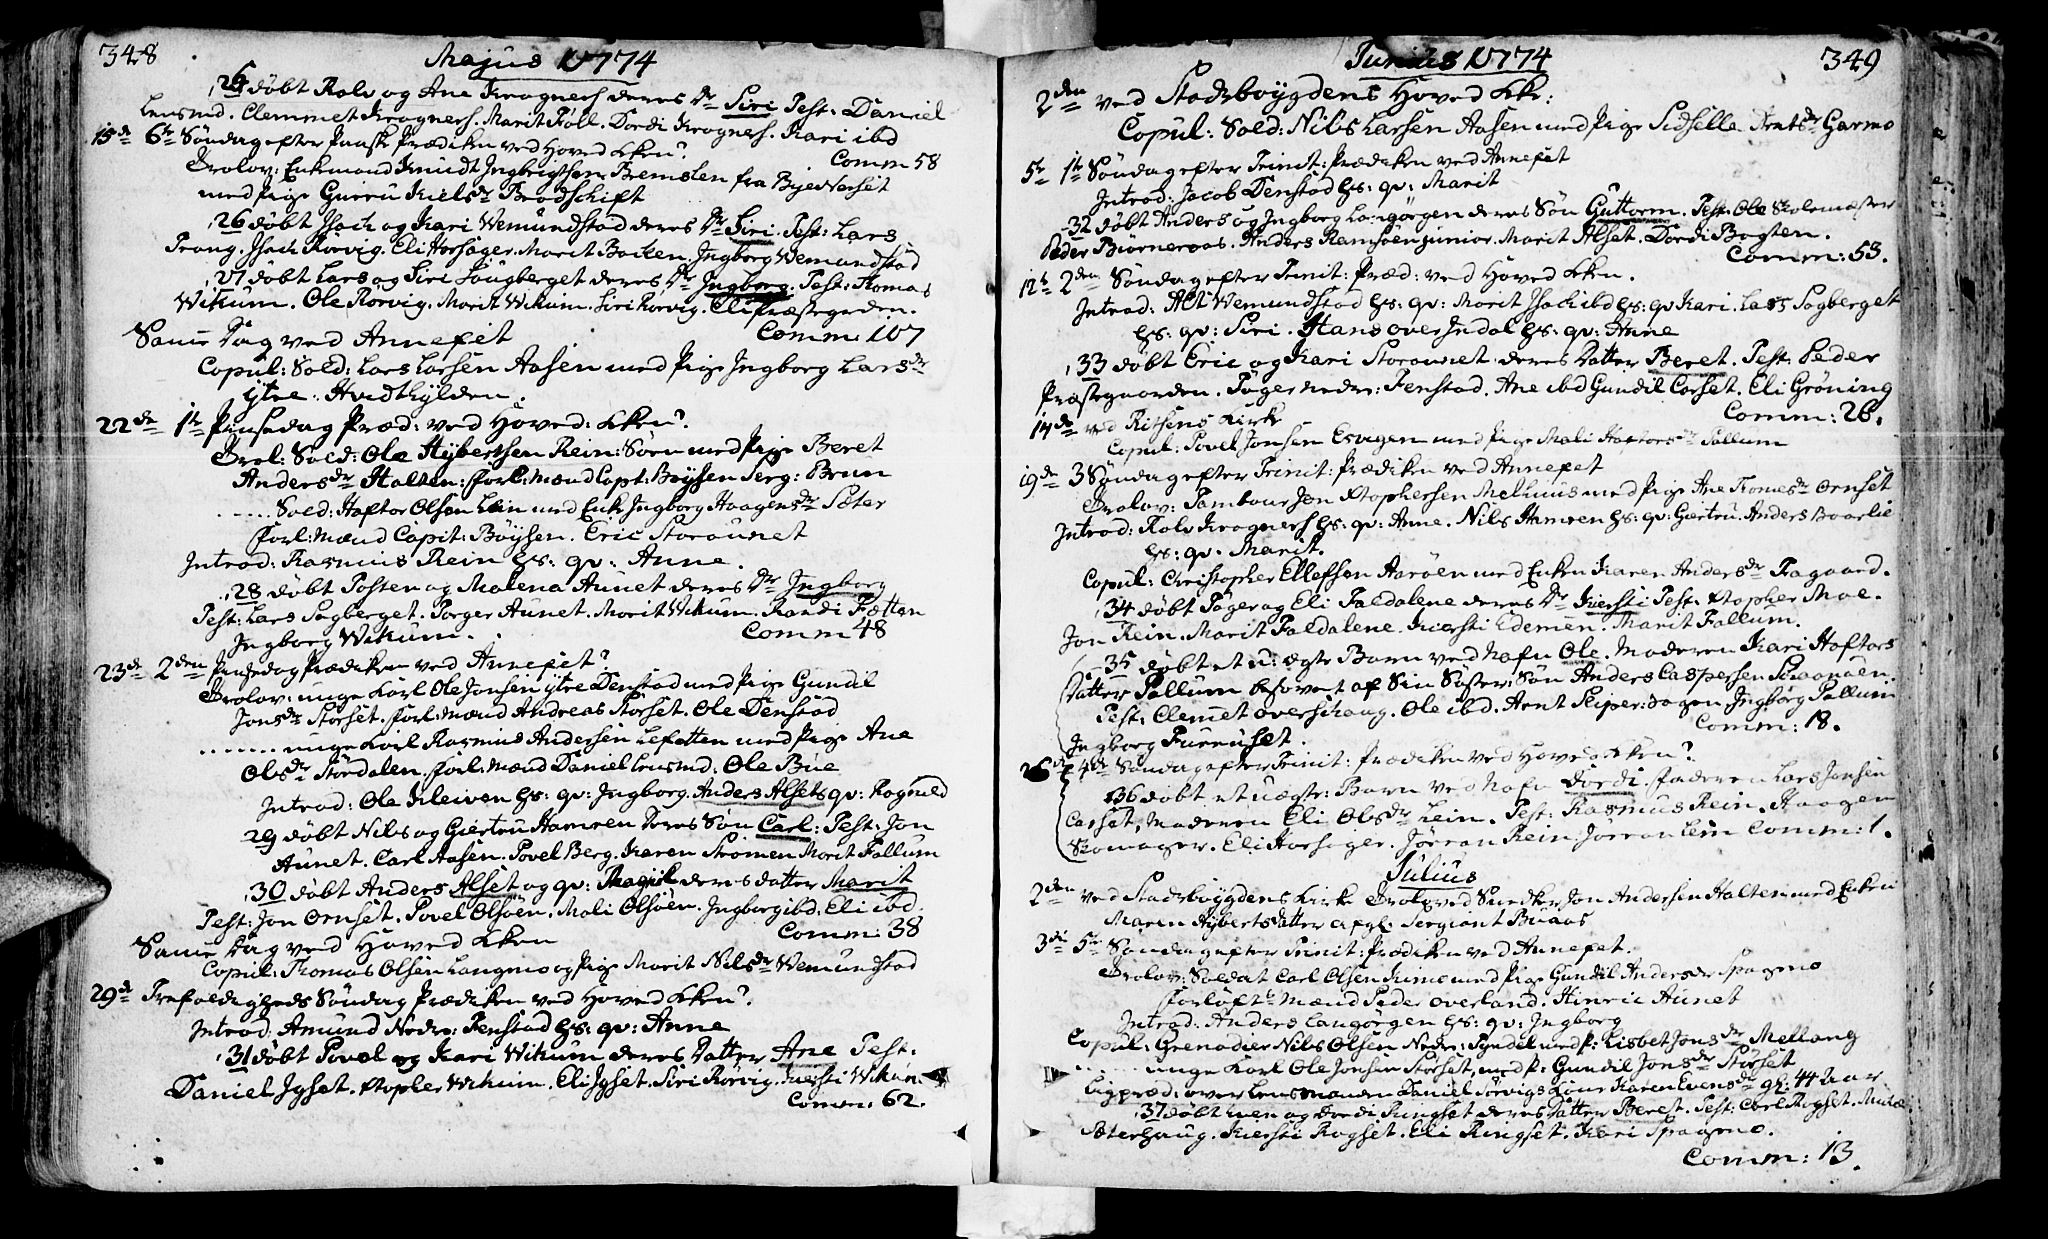 348
Majus 1774
26 döbt Rolv og Ane Krognes deres Dr Siri Test: Daniel
Lensmd. Clemmet Krognes. Marit Föll. Dordi Krognes. Kari ibd
15de 6te Söndag efter Paask Prædiken ved Hoved Kken?
Comm 58
Trolov: Enkemand Knudt Ingbrigtsen Bremsten fra
med Pige Gurru Kielsdr Brodschift
26 döbt Isach og Kari Wemundstad deres Dr Siri. Test: Lars
Prang. Isach Rørvig. Eli Horsager. Marit Backen. Ingborg Wemundstad
27 döbt Lars og Siri Sougberget deres Dr Ingborg. Test: Tomas
Wikum. Ole Rorvig. Marit Wikum. Siri Rorvig. Eli Præstegrden.
Comm: 107
Samme Dag ved Annexet
Copul: Sold: Lars Larsen Aasen med Pige Ingborg Larsdr
ytre: Hvidthylden.
22de 1te Pinsedag Præd: ved Hoved: Kken?
Trol: Sold: Ole Hybertsen Rein: Sören med Pige Beret
Andersdr Halten: forl: Mænd Capt: Böysen Serg: Brun
..... Sold: Haftor Olsen Lein med Enke Ingborg Haagensdr Sæter
forl: Mænd Capit: Böysen. Eric Storaunet
Introd: Rasmus Rein hs: qv: Anne.
28 döbt Tosten og Malena Aunet deres Dr Ingborg
Test: Lars Sogberget. Torger Aunet. Marit Wikum. Randi Fætten
Ingborg Wikum.
Comm 48
23de 2den Pinsedag Prædiken ved Annexet?
Trolov: unge Karl Ole Jonsen ytre Denstad med Pige Gundil
Jonsdr Storset. forl: Mænd Andreas Storset. Ole Denstad
....... unge Karl Rasmus Andersen Lefætten med Pige Ane
Olsdr Stördalen. forl: Mænd Daniel Lensmd: Ole Bue
Introd: Ole Kleiven hs: qv: Ingborg. Anders Alsets qv: Ragnild
29 döbt Nils og Giertru Hamren deres Søn Carl: Test: Jon
Aunet. Carl Aasen. Povel Berg. Karen Strömen Marit Fallum
30 döbt Anders Alset og qv: Magnil deres datter Marit
Test: Jon Ornset. Povel Olsöen. Mali Olsöen. Ingborg ibd. Eli ibd.
Comm: 38
Samme Dag ved Hoved Kken
Copul: Thomas Olsen Langmo og Pige Marit Nilsdr Wemundstad
29de Trefoldigheds Söndag Prædiken ved Hoved Kken?.
Introd: Amund Nedre: Fenstad hs: qv: Anne
31 döbt Povel og Kari Wikum deres Datter Ane Test:
Daniel Igset. Xtopher Wikum. Eli Igset. Siri Rörvig. Kiersti Wikum
Comm: 62.
349
Junius 1774
2den ved Stadsboygdens Hoved Kke:
Copul: Sold: Nils Larsen Aasen med Pige Sidselle Arntsdr Garmo
5te 1te Söndag efter Trinit: Prædiken ved Annexet
Introd: Jacob Denstad hs: qv: Marit
32 döbt Anders og Ingborg Langörgen deres Sön Guttorm. Test: Ole Skolemester
Peder Biörneraas. Anders Ramsöen junior. Marit Alset. Dordi Bogten.
Comm: 53.
12te 2den Söndag efter Trinit: Præd: ved Hoved Kken.
Introd: Alt Wemundstad hs: qv: Marit Isach ibd hs: qv Kari. Lars Sogberget
hs: qv: Siri. Hans over Indal hs: qv: Anne
33 döbt Eric og Kari Storaunet deres Datter Beret. Test: Peder
Præstegaarden. Töger nedre: Fenstad. Ane ibd Gundil Corset. Eli Gröning
Comm: 26.
14de ved Ritsens Kirke
Copul: Povel Jonsen Evagen med Pige Mali Haftorsdr Pallum
19de 3 Söndag efter Trinit: Prædiken ved Annexet
Trolov: Tambour Jon Xtophersen Melhuus med Pige Ane Tomesdr Ornset
Introd: Rolv Krognes hs: qv: Anne. Nils Hamren hs: qv: Giertru. Anders Boarlie
hs: qv. Marit.
Copul: Christopher Ellefsen Aaröen med Enken Karen Andersdr Fragaard.
34 döbt Töger og Eli Faldalene deres Dr Kiersti Test: Xtopher Moe.
Jon Rein. Marit Faldalene. Kiersti Edemen. Marit Fallum.
35 döbt et u: ægte Barn ved Nafn Ole. Moderen Kari Haftors
Datter Pallum besovet af Sin Söster: Sön Anders Caspersen
Test: Clemet overskaug. Ole ibd. Arnt Skiper: hagen Ingborg Pallum
Ingborg Furruset.
Comm: 18.
26de 4de Söndag efter Trinit: Prædiken ved Hoved Kken?
36 döbt et uægte: Barn ved Nafn Dordi. faderen Lars Jonsen
Corset, Moderen Eli Olsdr Lein. Test: Rasmus Rein. Haagen
Skomager. Eli Horsager. Jörran Rein Jorran Lein Comm: 1.
Julius
2den ved Stadsboygdens Kirke Troloved Snedker Jon Andersen Halten med Enken
Maren Hyberts Datter afgl: Sergiant Buaas
3die 5te Söndag efter Trinit: Prædiken ved Annexet.
Trolov: Soldat Carl Olsen Kimo med Pige Gundil Andersdr Spagmo
forlöfts Mænd Peder Overland. Hinric Aunet
Introd: Anders Langörgen hs: qv: Ingborg
Copul: Grenadier Nils Olsen Nedre: Tyndel med P: Lisbet Jonsdr Mellang
..... unge Karl Ole Jonsen Störset, med P: Gundil Jonsdr Störset
Ligpræd: over Lensmanden Daniel Sörvigs Kone Karen Evensdr gl: 44 Aar.
37 döbt Even og Dordi Rungset deres Datter Berest. Test: Carl Rogset.
Sæterhaug. Kiersti Rogset. Eli Ringset. Kari Spagmo.
Comm: 13.